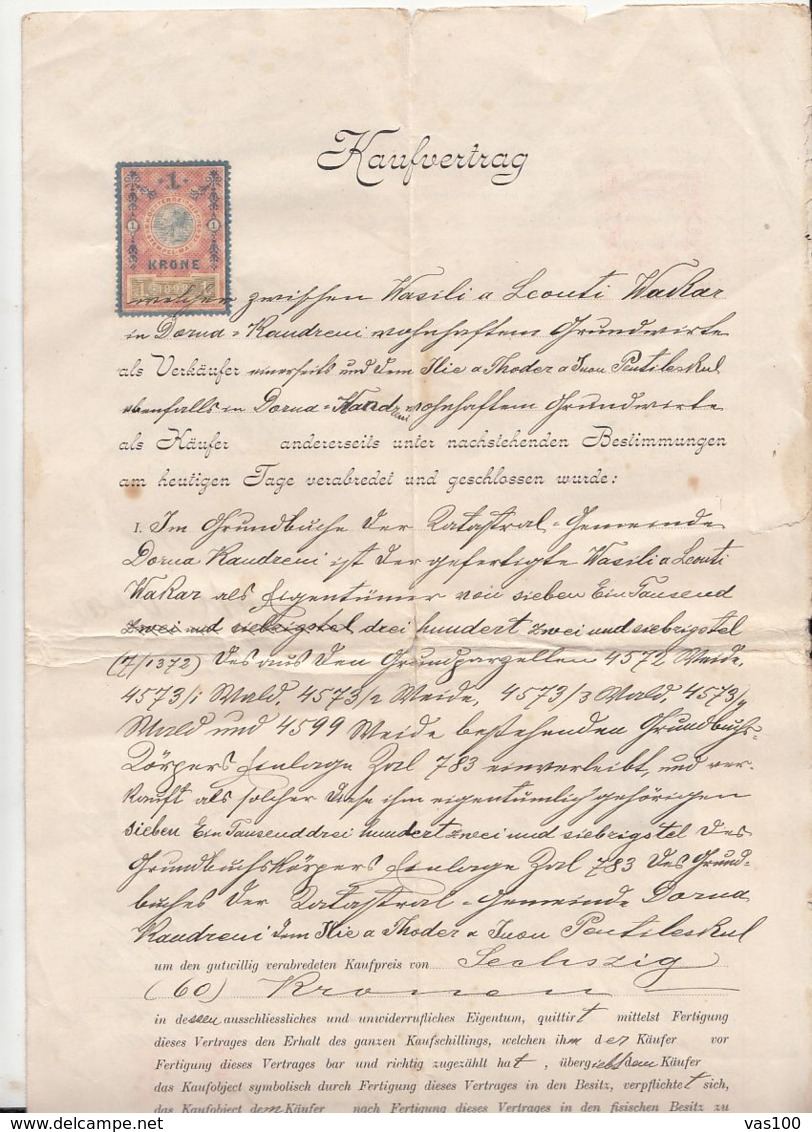 Kaufvertrag
1
1 1
KRONE
1 1898 1
welcher zwischen Wasili a Leonti Wakar
in Dorna-Kandreni wohnhaftem Grundwirte
als Verkäufer einerseits und dem Ilie a Thoder a Iuon Pentileskul
ebenfalls in Dorna-Kandreni wohnhaftem Grundwirte
als Käufer andererseits unter nachstehenden Bestimmungen
am heutigen Tage verabredet und geschlossen wurde:
I. Im Grundbuche der Katastral-Gemeinde
Dorna Kandreni ist der gefertigte Wasili a Leonti
Wakar als Eigentümer von sieben Ein Tausend
zwei und siebzigstel drei hundert zwei und siebzigstel
(7/1372) des aus den Grundparzellen 4572 Weide,
4573/1 Wald, 4573/2 Weide, 4573/3 Wald, 4573/4
Wald und 4599 Weide bestehenden Grundbuchs-
körpers Einlage Zal 783 einverleibt, und ver-
kauft als solcher diese ihm eigentümlich gehörigen
sieben Ein Tausend drei hundert zwei und siebzigstel des
Grundbuchskörpers Einlage Zal 783 des Grund-
buches der Katastral-Gemeinde Dorna
Kandreni dem Ilie a Thoder a Iuon Pentileskul
um den gutwillig verabredeten Kaufpreis von Sechszig
(60) Kronen
in dessen ausschliessliches und unwiderrufliches Eigentum, quittirt mittelst Fertigung
dieses Vertrages den Erhalt des ganzen Kaufschillings, welchen ihm der Käufer vor
Fertigung dieses Vertrages bar und richtig zugezählt hat, übergiebt dem Käufer
das Kaufobject symbolisch durch Fertigung dieses Vertrages in den Besitz, verpflichtet sich,
das Kaufobject dem Käufer nach Fertigung dieses Vertrages in den fisischen Besitz zu
delcampe.net
vas100